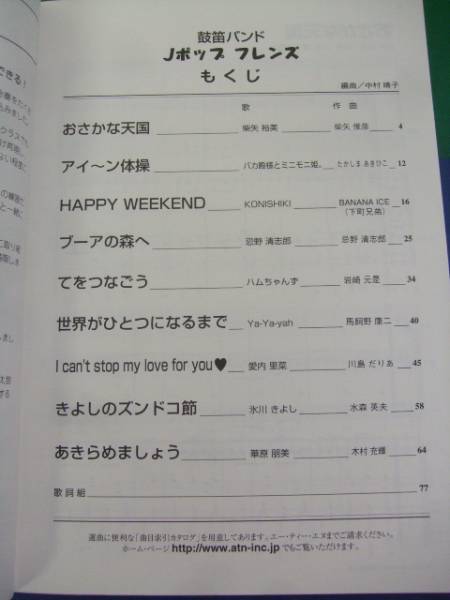 鼓笛バンド
Jポップ フレンズ
もくじ
編曲／中村 晴子
歌 作曲
おさかな天国 柴矢 裕美 柴矢 俊彦 4
アイ〜ン体操 バカ殿様とミニモニ姫。 たかしま あきひこ 12
HAPPY WEEKEND KONISHIKI BANANA ICE 16
(下町兄弟)
ブーアの森へ 忌野 清志郎 忌野 清志郎 25
てをつなごう ハムちゃんず 岩崎 元是 34
世界がひとつになるまで Ya-Ya-yah 馬飼野 康二 40
I can't stop my love for you♥ 愛内 里菜 川島 だりあ 45
きよしのズンドコ節 氷川 きよし 水森 英夫 58
あきらめましょう 華原 朋美 木村 充輝 64
歌詞組 77
選曲に便利な「曲目索引カタログ」を用意してあります。エー・ティー・エヌまでご請求ください。
ホーム・ページ http://www.atn-inc.jp でもご覧いただけます。